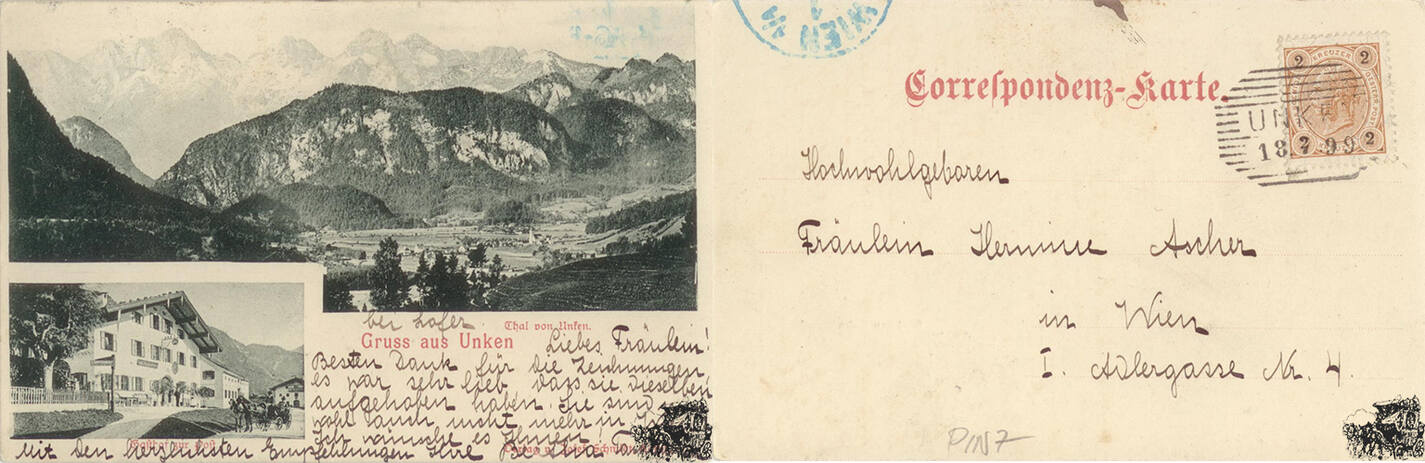 bei Lofer.
Thal von Unken.
Gruss aus Unken
Liebes Fräulein!
Besten Dank für die Zeichnungen
es war sehr lieb, dass sie dieselben
aufgehoben haben. Sie sind
wohl auch nicht mehr in
Ich wünsche es Ihnen
Gasthof zur Post
Mit den herzlichsten Empfehlungen Ihre
WIEN
Correspondenz-Karte.
2 KREUZER 2
2 2
UNKEN
18.7.99
Hochwohlgeboren
Fräulein Hermine Ascher
in Wien
I. Adlergasse Nr. 4.
PINZ